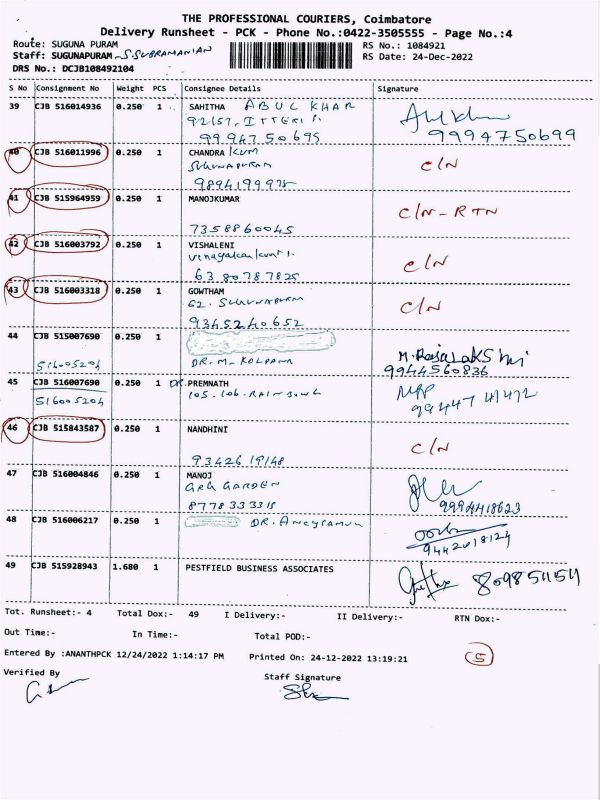 THE PROFESSIONAL COURIERS, Coimbatore
Delivery Runsheet - PCK - Phone No.:0422-3505555 - Page No.:4
Route: SUGUNA PURAM RS No.: 1084921
Staff: SUGUNAPURAM - S. SUBRAMANIAN RS Date: 24-Dec-2022
DRS No.: DCJB108492104
S No Consignment No Weight PCS Consignee Details Signature
39 CJB 516014936 0.250 1 SAHITHA ABUL KHAR
92/57, ITTERI
9994750699 9994750699
40 CJB 516011996 0.250 1 CHANDRA KUM
SUGUNAPURAM C/N
9894199975
41 CJB 515964959 0.250 1 MANOJKUMAR
C/N - RTN
7358860045
42 CJB 516003792 0.250 1 VISHALENI
C/N
6380787825
43 CJB 516003318 0.250 1 GOWTHAM
62. SUGUNAPURAM C/N
9345240652
44 CJB 515007690 0.250 1
516005204 DR. M. KALPANA M. Rajalakshmi
9944560836
45 CJB 516007690 0.250 1 DR. PREMNATH
516005204 105, 106. RAINBOWL 9944741472
46 CJB 515843587 0.250 1 NANDHINI
C/N
9342619148
47 CJB 516004846 0.250 1 MANOJ
GRG GARDEN
8778333315 9994418623
48 CJB 516006217 0.250 1 DR.
9442018124
49 CJB 515928943 1.680 1 PESTFIELD BUSINESS ASSOCIATES
Tot. Runsheet:- 4 Total Dox:- 49 I Delivery:- II Delivery:- RTN Dox:-
Out Time:- In Time:- Total POD:-
Entered By :ANANTHPCK 12/24/2022 1:14:17 PM Printed On: 24-12-2022 13:19:21 5
Verified By Staff Signature